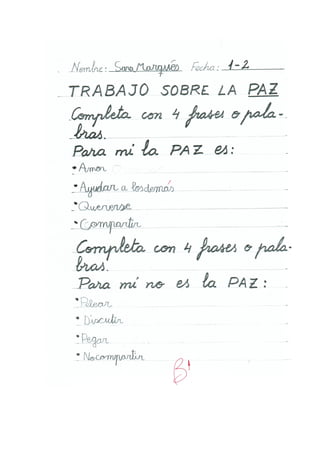 Nombre: Sara Marqués Fecha: 1-2
TRABAJO SOBRE LA PAZ
Completa con 4 frases o pala-
bras.
Para mi la PAZ es:
• Amor
• Ayudar a losdemás
• Quererse
• Compartir
Completa con 4 frases o pala-
bras.
Para mí no es la PAZ:
• Pelear
• Discutir
• Pegar
• Nocompartir
B!